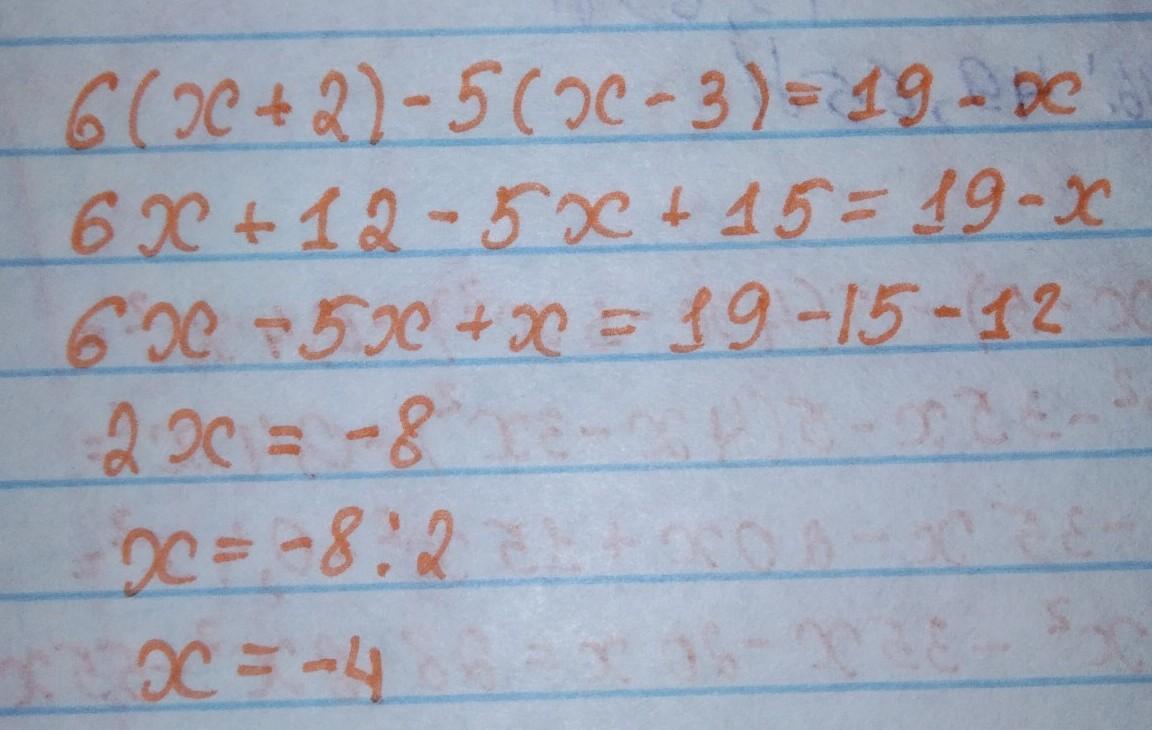 6(x+2)-5(x-3)=19-x
6x+12-5x+15=19-x
6x-5x+x=19-15-12
2x=-8
x=-8:2
x=-4